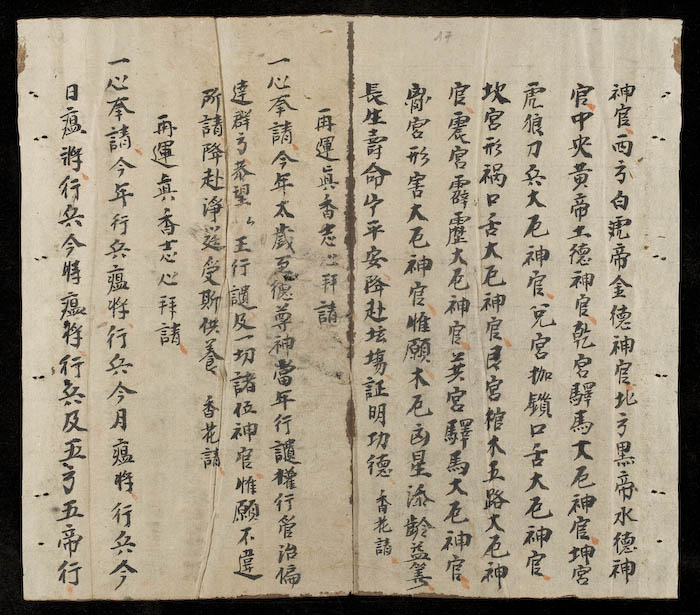 17
神官西方白虎帝金德神官北方黑帝水德神
官中央黃帝土德神官乾宮驛馬大厄神官坤宮
虎狼刀兵大厄神官兌宮枷鎖口舌大厄神官
坎宮形禍口舌大厄神官艮宮棺木五路大厄神
官震宮霹靂大厄神官巽宮驛馬大厄神官
离宮形害大厄神官惟願大厄凶星添齡益算
長生壽命平安降赴坛場証明功德 香花請
再運眞香志心拜請
一心奉請今年太歲至德尊神當年行譴權行管治偏
達群方恭望 王行譴及一切諸位神官惟願不違
所請降赴淨筵受斯供養 香花請
再運眞香志心拜請
一心奉請今年行兵瘟將行兵今月瘟將行兵今
日瘟將行兵今時瘟將行兵及五方五帝行